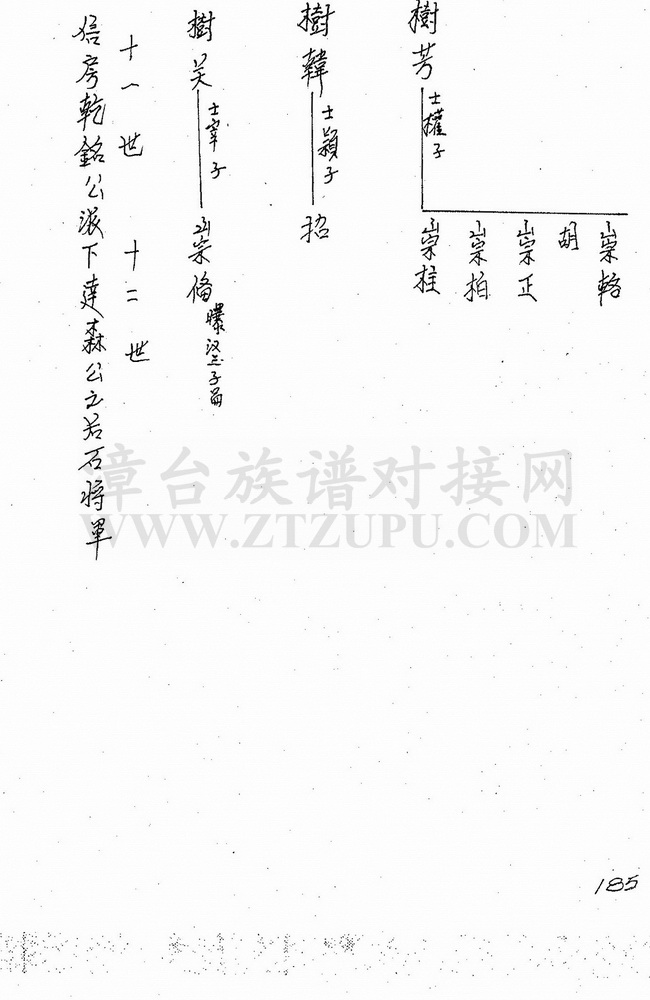 樹芳
士權子
崇輅
胡
崇正
崇柏
崇柱
樹韓
士穎子
招
樹美
士宰子
崇脩
十一世 十二世
信房乾銘公派下達森公之后石將軍
漳台族谱对接网
WWW.ZTZUPU.COM
185